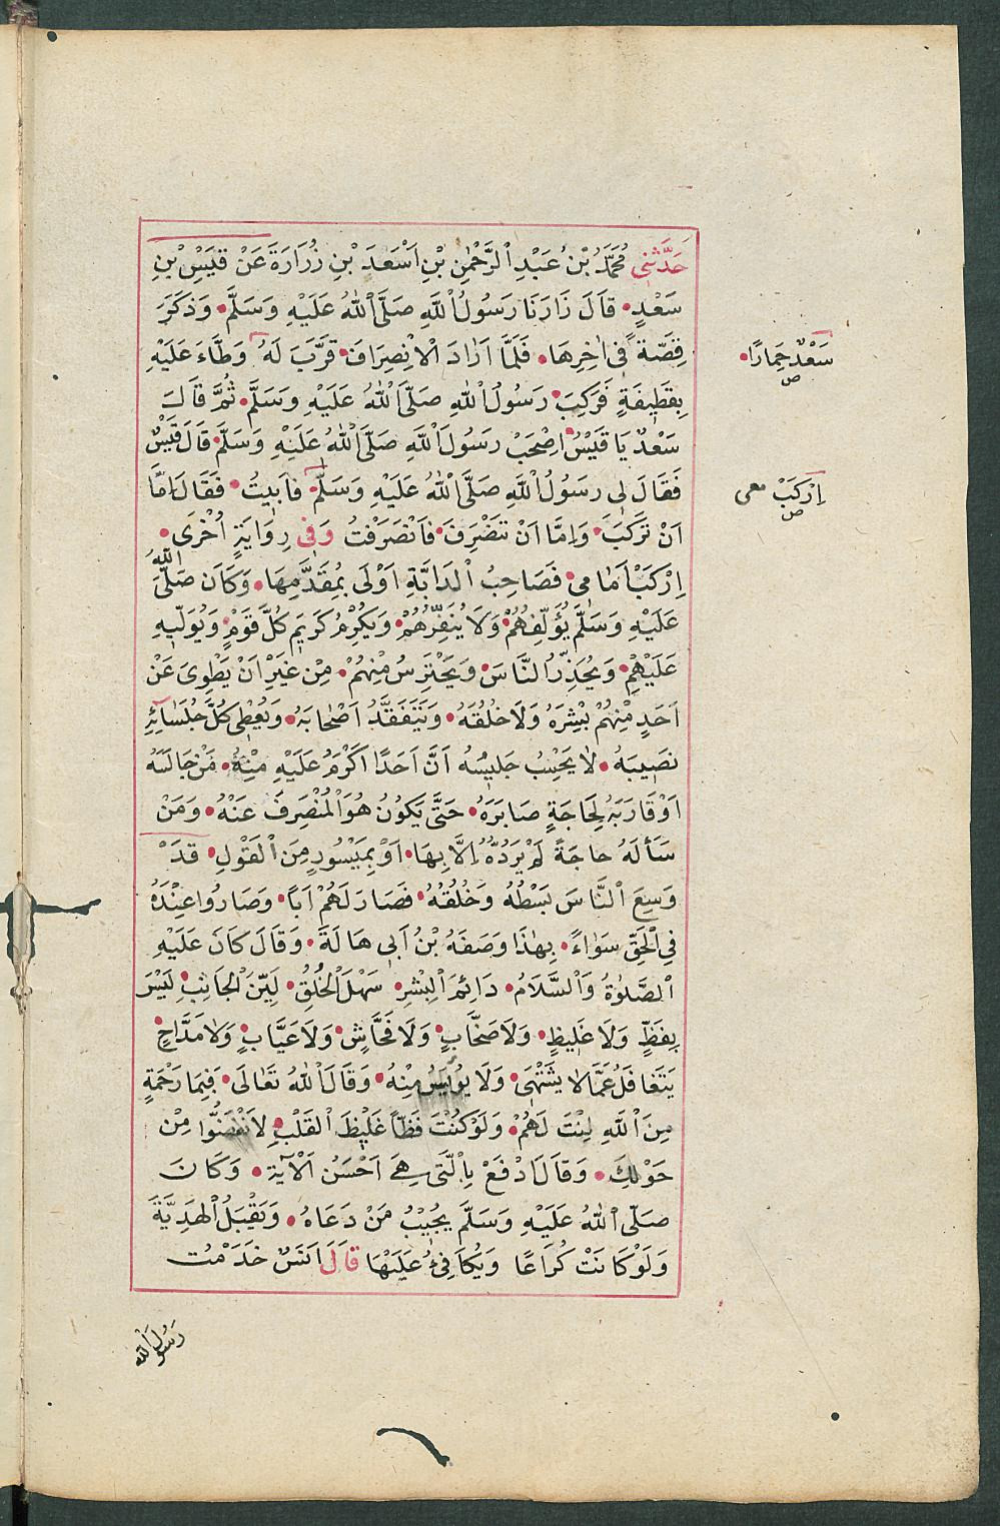 حَدَّثَنِى مُحَمَّدُ بْنُ عَبْدِ الرَّحْمٰنِ بْنِ اَسْعَدَ بْنِ زُرَارَةَ عَنْ قَيْسِ بْنِ
سَعْدٍ • قَالَ زَارَنَا رَسُولُ اللّٰهِ صَلَّى اللّٰهُ عَلَيْهِ وَسَلَّمَ • وَذَكَرَ
قِصَّةً فِى اٰخِرِهَا • فَلَمَّا اَرَادَ الْاِنْصِرَافَ • قَرَّبَ لَهُ وَطَّاءَ عَلَيْهِ
سَعْدٌ حِمَارًا • صح
بِقَطِيفَةٍ فَرَكِبَ • رَسُولُ اللّٰهِ صَلَّى اللّٰهُ عَلَيْهِ وَسَلَّمَ • ثُمَّ قَالَ
سَعْدٌ يَا قَيْسُ • اِصْحَبْ رَسُولَ اللّٰهِ صَلَّى اللّٰهُ عَلَيْهِ وَسَلَّمَ • قَالَ قَيْسٌ
فَقَالَ لِى رَسُولُ اللّٰهِ صَلَّى اللّٰهُ عَلَيْهِ وَسَلَّمَ • فَاَبَيْتُ • فَقَالَ اِمَّا
اِرْكَبْ معى صح
اَنْ تَرْكَبَ • وَاِمَّا اَنْ تَنْصَرِفَ • فَانْصَرَفْتُ وَفِى رِوَايَةٍ اُخْرٰى •
اِرْكَبْ اَمَامِى • فَصَاحِبُ الدَّابَّةِ اَوْلَى بِمُقَدَّمِهَا • وَكَانَ صَلَّى اللّٰهُ
عَلَيْهِ وَسَلَّمَ يُؤَلِّفُهُمْ • وَلَا يُنَفِّرُهُمْ • وَيُكْرِمُ كَرِيمَ كُلِّ قَوْمٍ • وَيُوَلِّيهِ
عَلَيْهِمْ • وَيُحَذِّرُ النَّاسَ • وَيَحْتَرِسُ مِنْهُمْ • مِنْ غَيْرِ اَنْ يَطْوِىَ عَنْ
اَحَدٍ مِنْهُمْ بِشْرَهُ وَلَا خُلُقَهُ • وَيَتَفَقَّدُ اَصْحَابَهُ • وَيُعْطِى كُلَّ جُلَسَائِهِ
نَصِيبَهُ • لَا يَحْسِبُ جَلِيسُهُ اَنَّ اَحَدًا اَكْرَمُ عَلَيْهِ مِنْهُ • مَنْ جَالَسَهُ
اَوْ قَارَبَهُ لِحَاجَةٍ صَابَرَهُ • حَتَّى يَكُونَ هُوَ الْمُنْصَرِفَ عَنْهُ • وَمَنْ
سَأَلَهُ حَاجَةً لَمْ يَرُدَّهُ اِلَّا بِهَا • اَوْ بِمَيْسُورٍ مِنَ الْقَوْلِ • قَدْ
وَسِعَ النَّاسَ بَسْطُهُ وَخُلُقُهُ • فَصَارَ لَهُمْ اَبًا • وَصَارُوا عِنْدَهُ
فِى الْحَقِّ سَوَاءً • بِهٰذَا وَصَفَهُ بْنُ اَبِى هَالَةَ • وَقَالَ كَانَ عَلَيْهِ
الصَّلٰوةُ وَالسَّلَامُ • دَائِمَ الْبِشْرِ • سَهْلَ الْخُلُقِ • لَيِّنَ الْجَانِبِ • لَيْسَ
بِفَظٍّ وَلَا غَلِيظٍ • وَلَا صَخَّابٍ • وَلَا فَحَّاشٍ • وَلَا عَيَّابٍ • وَلَا مَدَّاحٍ •
يَتَغَافَلُ عَمَّا لَا يَشْتَهِى • وَلَا يُؤْيَسُ مِنْهُ • وَقَالَ اللّٰهُ تَعَالٰى • فَبِمَا رَحْمَةٍ
مِنَ اللّٰهِ لِنْتَ لَهُمْ • وَلَوْ كُنْتَ فَظًّا غَلِيظَ الْقَلْبِ • لَانْفَضُّوا مِنْ
حَوْلِكَ • وَقَالَ ادْفَعْ بِالَّتِى هِىَ اَحْسَنُ الْاٰيَةَ • وَكَانَ
صَلَّى اللّٰهُ عَلَيْهِ وَسَلَّمَ يُجِيبُ مَنْ دَعَاهُ • وَيَقْبَلُ الْهَدِيَّةَ
وَلَوْ كَانَتْ كُرَاعًا وَيُكَافِئُ عَلَيْهَا قَالَ اَنَسٌ خَدَمْتُ
رَسُولَ اللّٰه